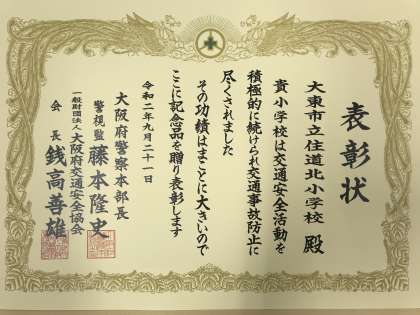 表彰状
大東市立住道北小学校 殿
貴小学校は交通安全活動を
積極的に続けられ交通事故防止に
尽くされました
その功績はまことに大きいので
ここに記念品を贈り表彰します
令和二年九月二十一日
大阪府警察本部長
警視監 藤本隆史
一般財団法人 大阪府交通安全協会
会長 銭高善雄